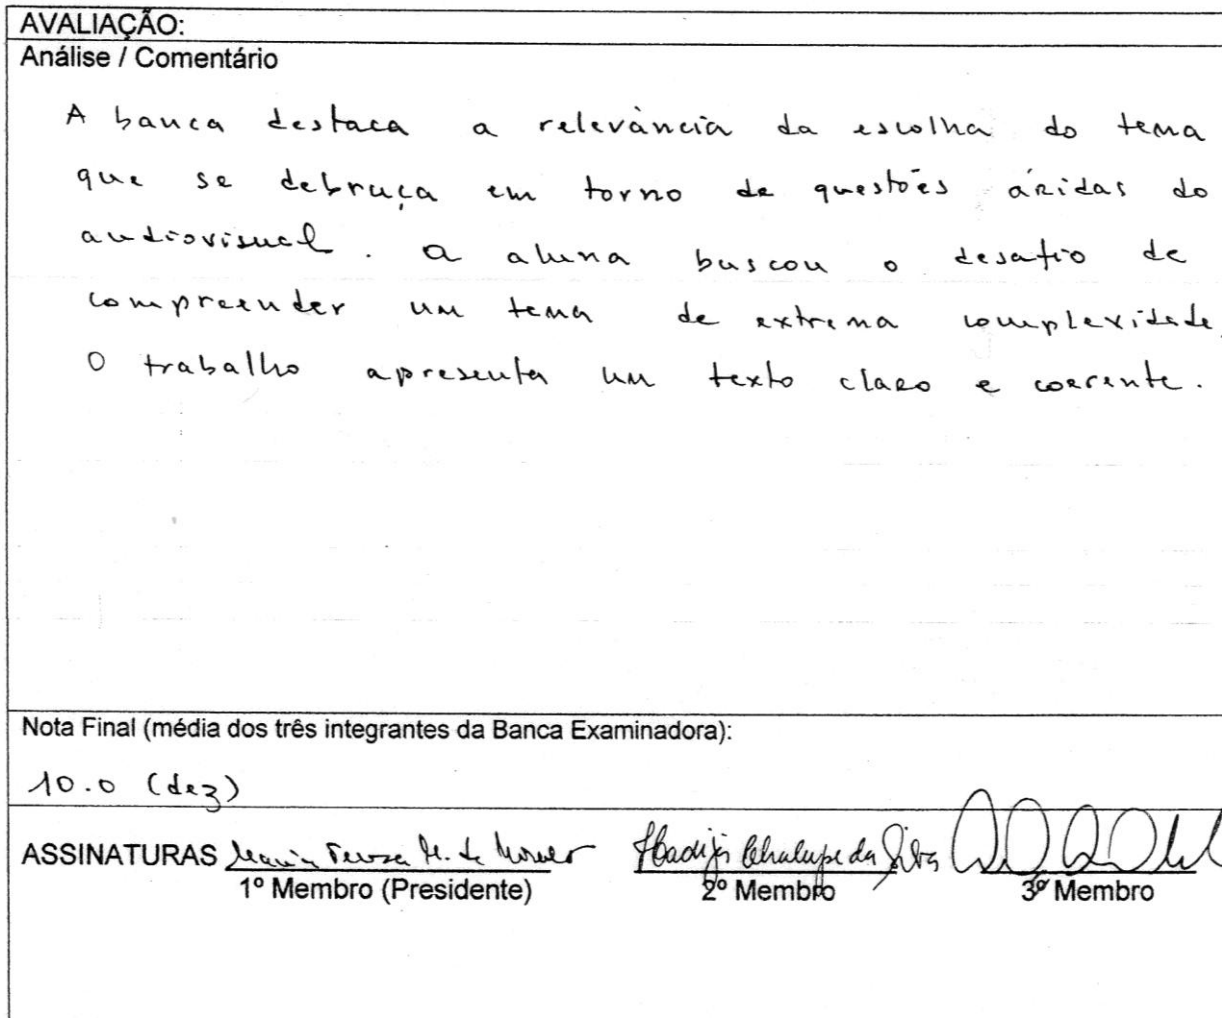 AVALIAÇÃO:
Análise / Comentário
A banca destaca a relevância da escolha do tema
que se debruça em torno de questões áridas do
audiovisual. A aluna buscou o desafio de
compreender um tema de extrema complexidade.
O trabalho apresenta um texto claro e coerente.
Nota Final (média dos três integrantes da Banca Examinadora):
10.0 (dez)
ASSINATURAS Maria Teresa da Silva
1º Membro (Presidente) 2º Membro 3º Membro